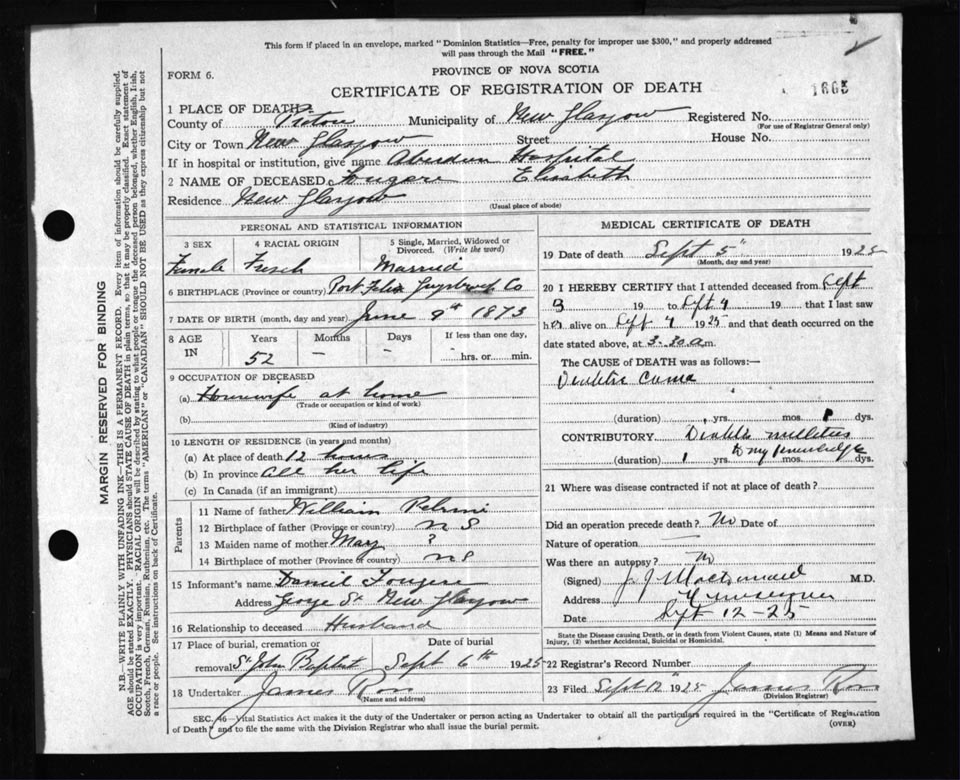 This form if placed in an envelope, marked "Dominion Statistics—Free, penalty for improper use $300," and properly addressed
will pass through the Mail "FREE."
PROVINCE OF NOVA SCOTIA
FORM 6.
CERTIFICATE OF REGISTRATION OF DEATH
1865
1 PLACE OF DEATH
County of Pictou Municipality of New Glasgow Registered No.
(For use of Registrar General only)
City or Town New Glasgow Street House No.
If in hospital or institution, give name Aberdeen Hospital
2 NAME OF DECEASED Fougere Elisabeth
Residence New Glasgow
(Usual place of abode)
PERSONAL AND STATISTICAL INFORMATION
3 SEX 4 RACIAL ORIGIN 5 Single, Married, Widowed or Divorced. (Write the word)
Female French Married
6 BIRTHPLACE (Province or country) Port Felix Guysboro Co
7 DATE OF BIRTH (month, day and year) June 9th 1873
8 AGE IN Years Months Days If less than one day,
52 — — hrs. or min.
9 OCCUPATION OF DECEASED
(a) Housewife at home
(Trade or occupation or kind of work)
(b)
(Kind of industry)
10 LENGTH OF RESIDENCE (in years and months)
(a) At place of death 12 hours
(b) In province all her life
(c) In Canada (if an immigrant)
Parents
11 Name of father William
12 Birthplace of father (Province or country) N S
13 Maiden name of mother Mary ?
14 Birthplace of mother (Province or country) N S
15 Informant's name Daniel Fougere
Address George St New Glasgow
16 Relationship to deceased Husband
17 Place of burial, cremation or removal Date of burial
St John Baptist Sept 6th 1925
18 Undertaker James Ross
(Name and address)
MEDICAL CERTIFICATE OF DEATH
19 Date of death Sept 5" 1925
(Month, day and year)
20 I HEREBY CERTIFY that I attended deceased from Sept
3 19 to Sept 4 19 that I last saw
her alive on Sept 4 1925 and that death occurred on the
date stated above, at 3.30 a m.
The CAUSE of DEATH was as follows:—
Diabetic Coma
(duration) yrs. mos. 1 dys.
CONTRIBUTORY Diabetes mellitus
(duration) 1 yrs. to my knowledge mos. dys.
21 Where was disease contracted if not at place of death?
Did an operation precede death? No Date of
Nature of operation —
Was there an autopsy? No
(Signed) J J MacDonald M.D.
Address
Date Sept 12-25
State the Disease causing Death, or in death from Violent Causes, state (1) Means and Nature of
Injury, (2) whether Accidental, Suicidal or Homicidal.
22 Registrar's Record Number
23 Filed Sept 12" 1925 James Ross
(Division Registrar)
SEC. 46—Vital Statistics Act makes it the duty of the Undertaker or person acting as Undertaker to obtain all the particulars required in the "Certificate of Registration
of Death" and to file the same with the Division Registrar who shall issue the burial permit.
(OVER)
MARGIN RESERVED FOR BINDING
N.B.—WRITE PLAINLY WITH UNFADING INK—THIS IS A PERMANENT RECORD. Every item of information should be carefully supplied.
AGE should be stated EXACTLY. PHYSICIANS should STATE CAUSE OF DEATH in plain terms, so that it may be properly classified. Exact statement of
OCCUPATION is very important. RACIAL ORIGIN will be described by stating to what people or tongue the deceased person belonged, whether English, Irish,
Scotch, French, German, Russian, Ruthenian, etc. The terms "AMERICAN" or "CANADIAN" SHOULD NOT BE USED as they express citizenship but not
a race or people. See instructions on back of Certificate.